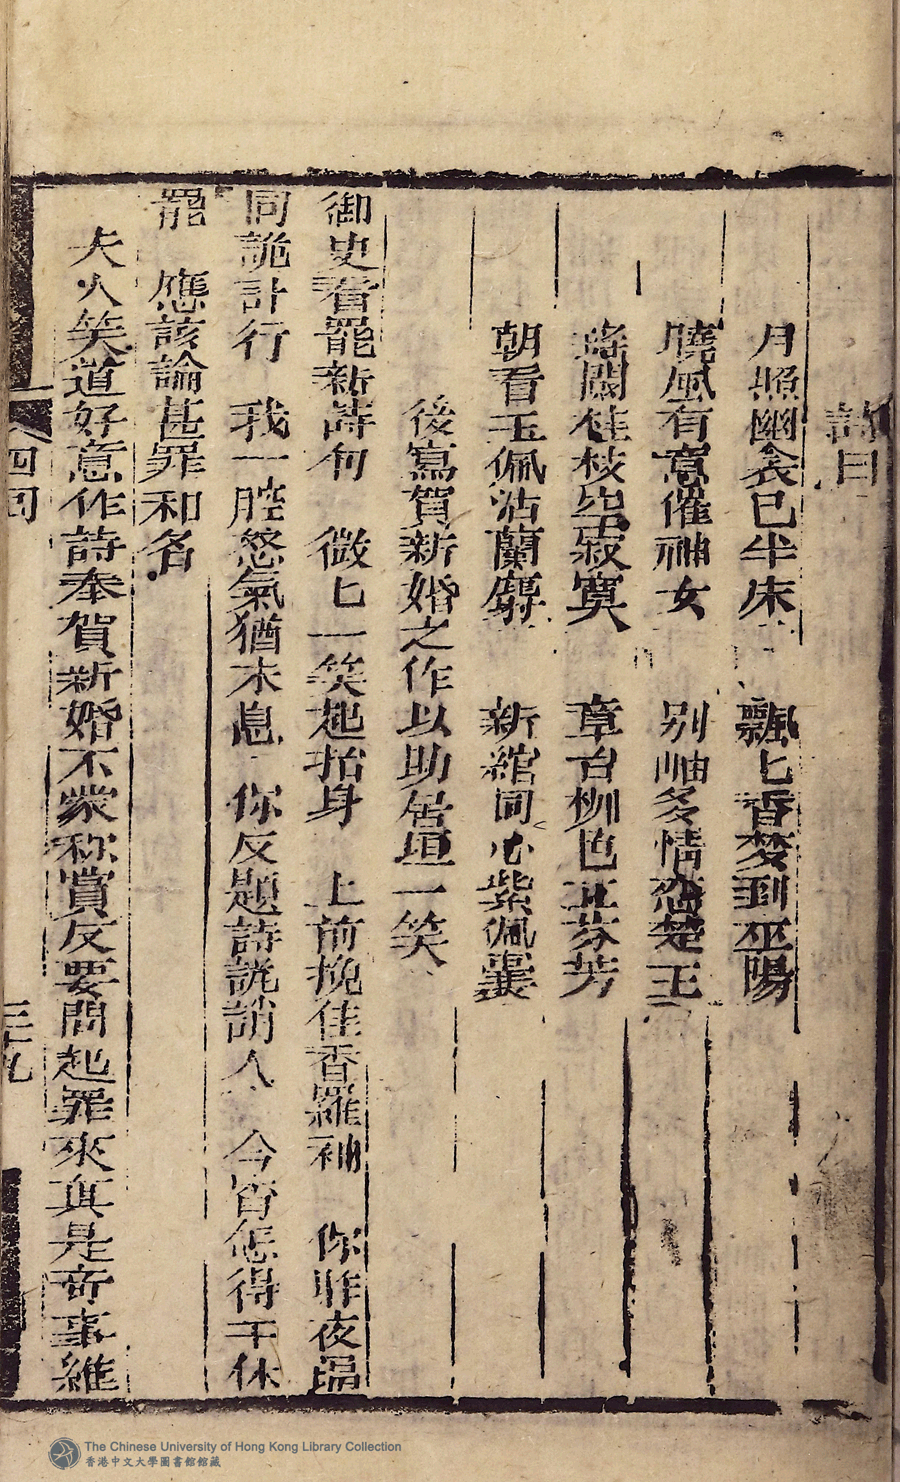 詩曰
月照幽衾已半床　飄匕香梦到巫陽
曉風有意催神女　别岫多情恋楚王
瑤闕桂枝空寂寞　章台柳色正芬芳
朝看玉佩沾蘭麝　新綰同心紫佩囊
後寫賀新婚之作以助居垣一笑
御史看罷新詩句　微匕一笑起抬身　上前挽住香羅袖　你昨夜
同詭計行　我一腔怒氣猶未息　你反題詩誚人　今宵怎得干休
罷　應該論甚罪和名
夫人笑道好意作詩奉賀新婚不蒙称賞反要問起罪來真是奇事維
四回
三十九
The Chinese University of Hong Kong Library Collection
香港中文大學圖書館館藏